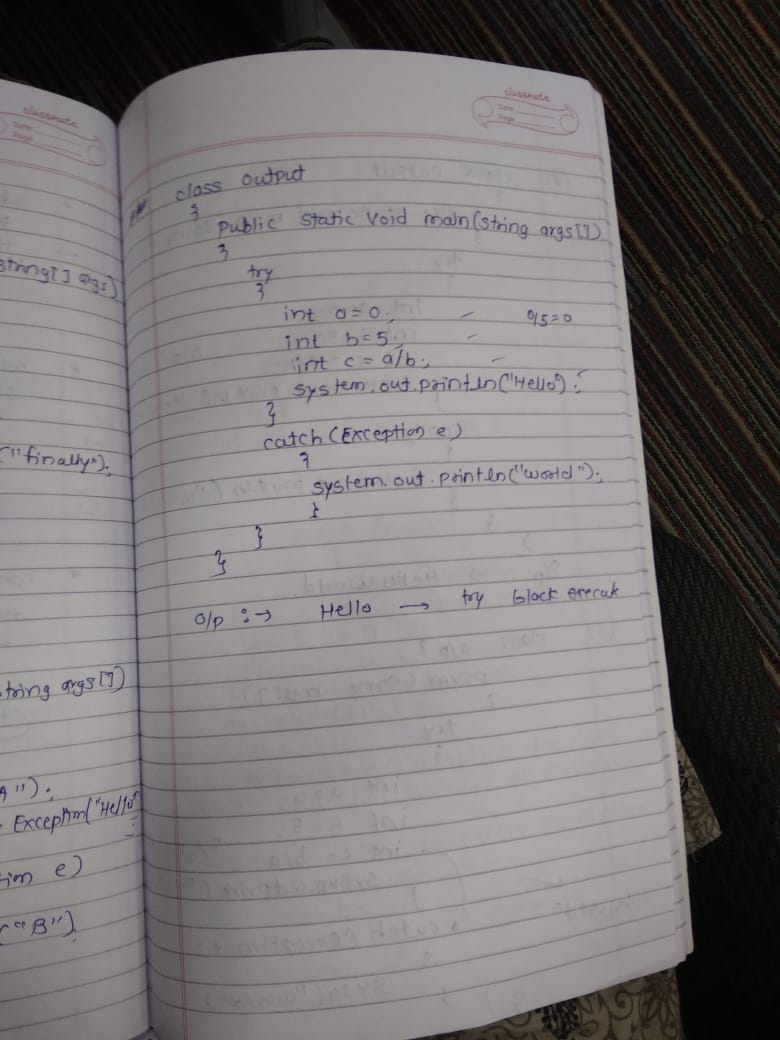 classmate
Date
Page
string[] args)
("finally");
string args[])
A");
Exception("Hello"
;
e)
("B").
classmate
Date
Page
class output
{
public static void main(string args[])
{
try
{
int a=0; 0/5=0
int b=5;
int c = a/b;
system.out.println("Hello");
}
catch(Exception e)
{
system.out.println("world");
}
}
}
o/p :→ Hello → try block execut